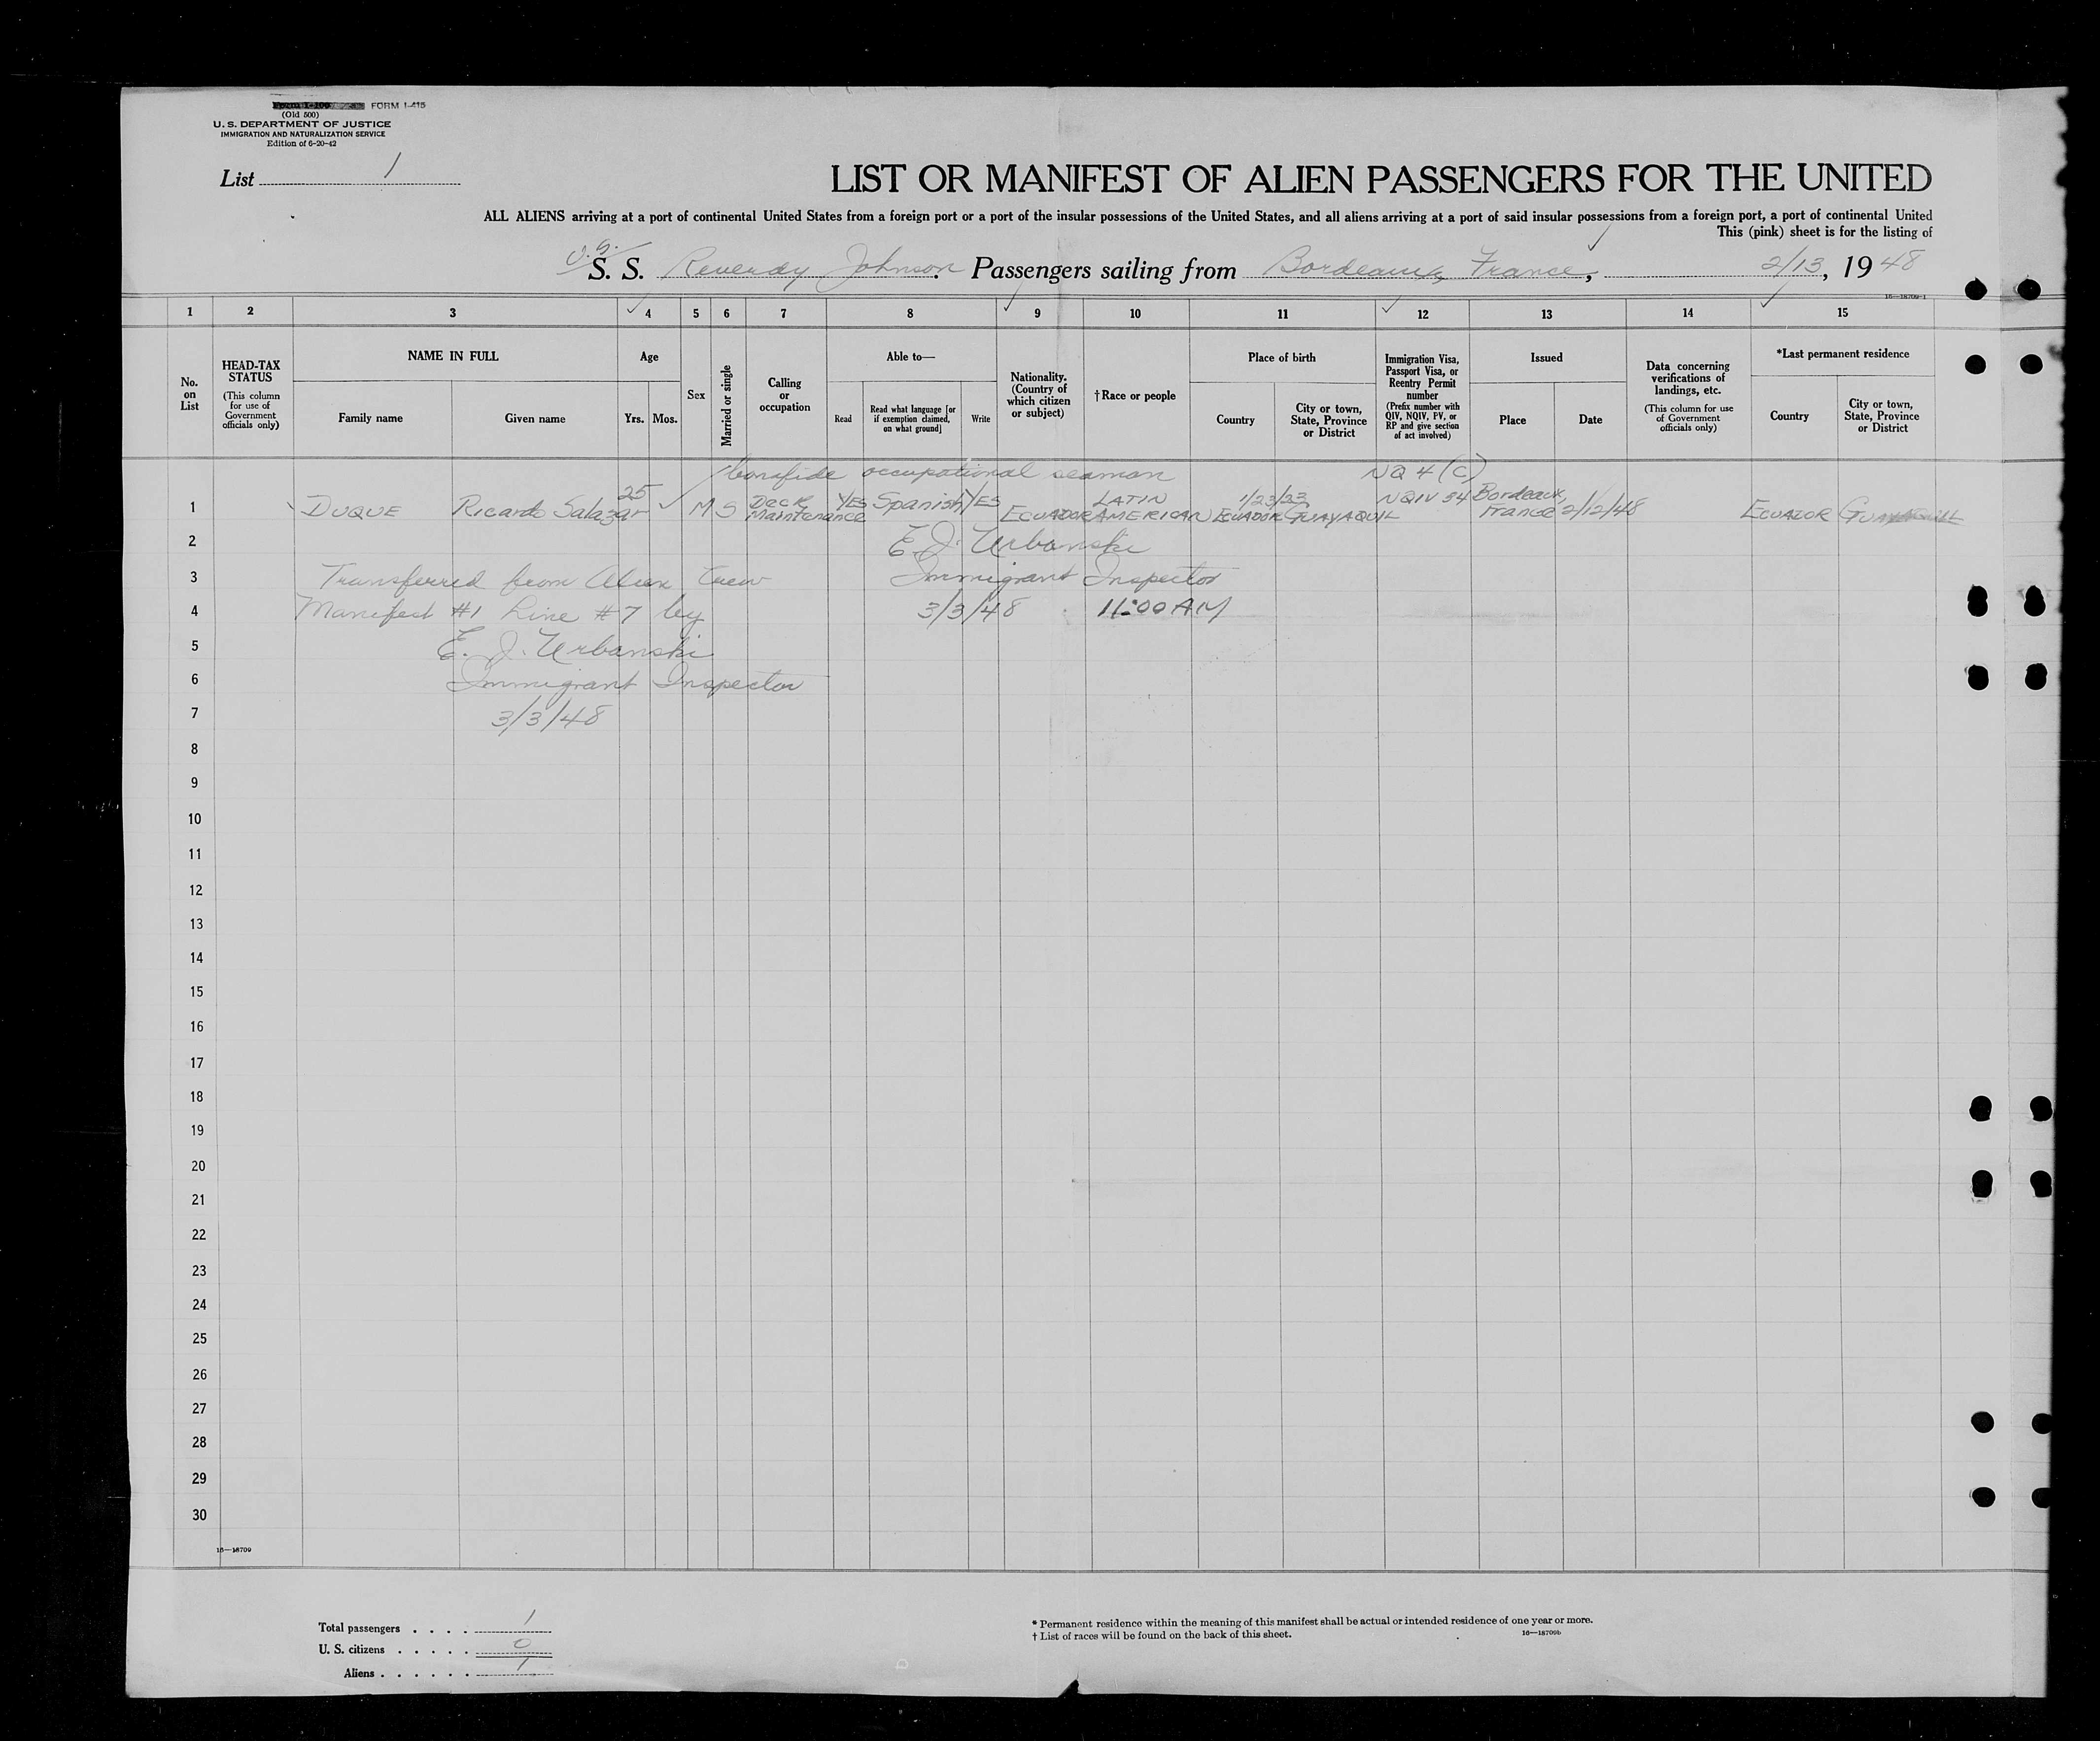 FORM I-415
(Old 500)
U. S. DEPARTMENT OF JUSTICE
IMMIGRATION AND NATURALIZATION SERVICE
Edition of 6-20-42
List 1
LIST OR MANIFEST OF ALIEN PASSENGERS FOR THE UNITED
ALL ALIENS arriving at a port of continental United States from a foreign port or a port of the insular possessions of the United States, and all aliens arriving at a port of said insular possessions from a foreign port, a port of continental United
This (pink) sheet is for the listing of
S. S. Reverdy Johnson. Passengers sailing from Bordeaux, France, 2/13, 1948
16—18709-1
1 2 3 4 5 6 7 8 9 10 11 12 13 14 15
No. on List
HEAD-TAX STATUS
(This column for use of Government officials only)
NAME IN FULL
Family name
Given name
Age
Yrs.
Mos.
Sex
Married or single
Calling or occupation
Able to—
Read
Read what language [or if exemption claimed, on what ground]
Write
Nationality. (Country of which citizen or subject)
†Race or people
Place of birth
Country
City or town, State, Province or District
Immigration Visa, Passport Visa, or Reentry Permit number
(Prefix number with QIV, NQIV, PV, or RP and give section of act involved)
Issued
Place
Date
Data concerning verifications of landings, etc.
(This column for use of Government officials only)
*Last permanent residence
Country
City or town, State, Province or District
bonafide occupational seaman NQ 4(C)
1 DUQUE Ricardo Salazar 25 M S Deck Maintenance YES Spanish YES ECUADOR LATIN AMERICAN 1/23/23 ECUADOR GUAYAQUIL NQIV 34 Bordeaux, France 2/12/48 ECUADOR
2 E. J. Urbanski
3 Transferred from Alien Crew Immigrant Inspector
4 Manifest #1 Line #7 by 3/3/48 11:00 AM
5 E. J. Urbanski
6 Immigrant Inspector
7 3/3/48
8
9
10
11
12
13
14
15
16
17
18
19
20
21
22
23
24
25
26
27
28
29
30
16—18709
Total passengers . . . . 1
U. S. citizens . . . . . 0
Aliens . . . . . . 1
* Permanent residence within the meaning of this manifest shall be actual or intended residence of one year or more.
† List of races will be found on the back of this sheet.
16—18709b